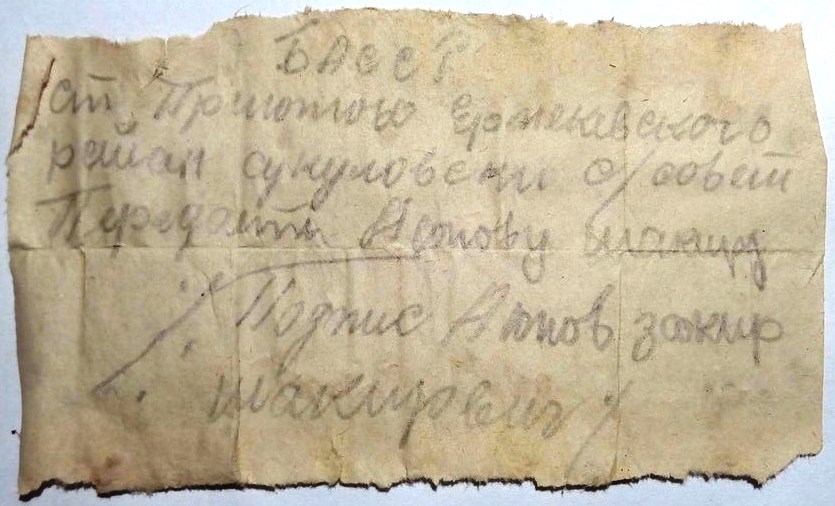 БАССР
ст Приютово Ермекавского
район сукуловски с/совет
Передати Аюпову шакиру
Подпис Аюпов закир
шакирович